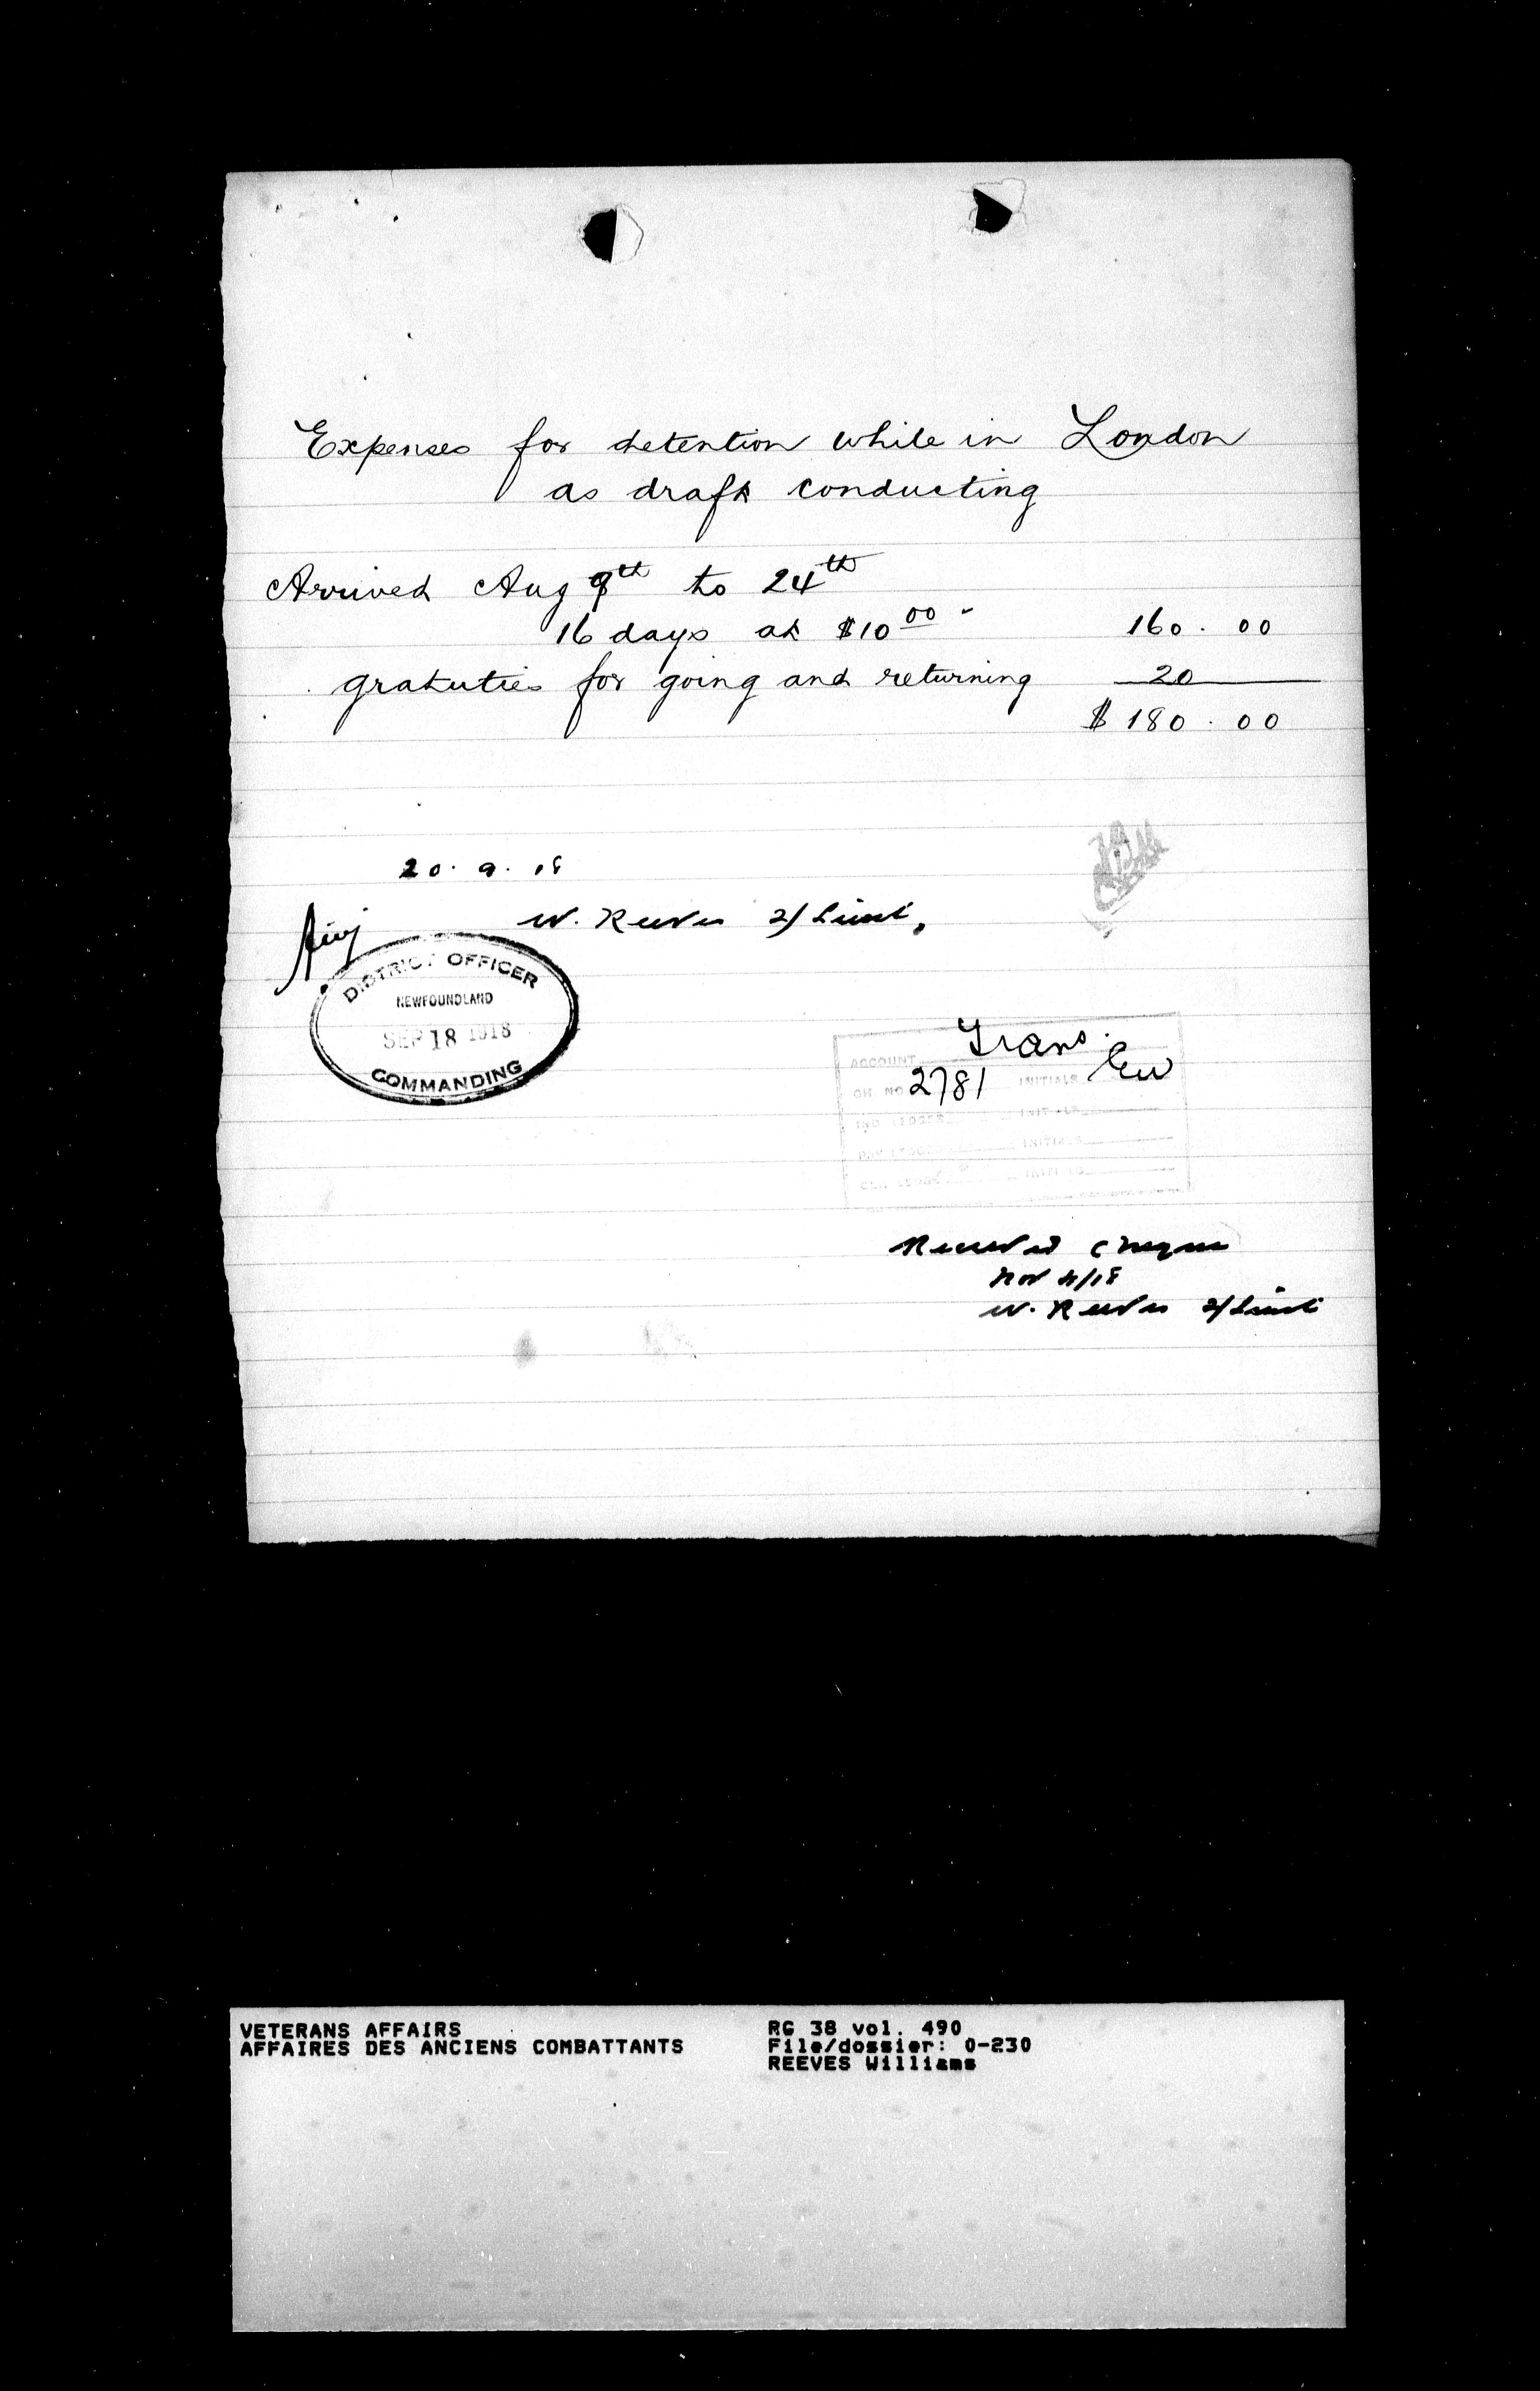 Expenses for detention while in London
as draft conducting
Arrived Aug 9th to 24th
16 days at $10 00 - 160. 00
gratuties for going and returning 20
$ 180. 00
20. 9. 18
W. Reeves 2/Lieut.
DISTRICT OFFICER
NEWFOUNDLAND
SEP 18 1918
COMMANDING
Trans.
ACCOUNT
CH NO 2781 INITIALS EW
IND LEDGER INITIALS
PAY LEDGER INITIALS
GEN LEDGER INITIALS
Received Cheque
Nov 4/18
W. Reeves 2/Lieut
VETERANS AFFAIRS
AFFAIRES DES ANCIENS COMBATTANTS
RG 38 vol. 490
File/dossier: 0-230
REEVES Williams